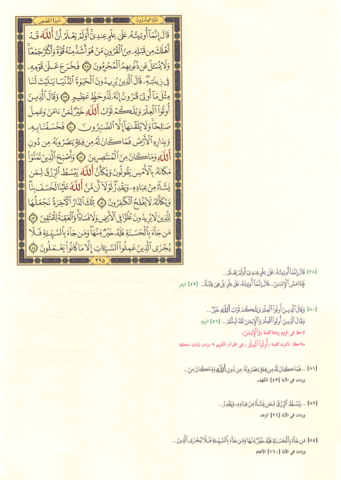 الجزء العشرون سورة القصص
قَالَ إِنَّمَا أُوتِيتُهُ عَلَىٰ عِلْمٍ عِندِي أَوَلَمْ يَعْلَمْ أَنَّ اللَّهَ قَدْ
أَهْلَكَ مِن قَبْلِهِ مِنَ الْقُرُونِ مَنْ هُوَ أَشَدُّ مِنْهُ قُوَّةً وَأَكْثَرُ جَمْعًا
وَلَا يُسْأَلُ عَن ذُنُوبِهِمُ الْمُجْرِمُونَ ٧٨ فَخَرَجَ عَلَىٰ قَوْمِهِ
فِي زِينَتِهِ قَالَ الَّذِينَ يُرِيدُونَ الْحَيَاةَ الدُّنْيَا يَا لَيْتَ لَنَا
مِثْلَ مَا أُوتِيَ قَارُونُ إِنَّهُ لَذُو حَظٍّ عَظِيمٍ ٧٩ وَقَالَ الَّذِينَ
أُوتُوا الْعِلْمَ وَيْلَكُمْ ثَوَابُ اللَّهِ خَيْرٌ لِّمَنْ ءَامَنَ وَعَمِلَ
صَالِحًا وَلَا يُلَقَّاهَا إِلَّا الصَّابِرُونَ ٨٠ فَخَسَفْنَا بِهِ
وَبِدَارِهِ الْأَرْضَ فَمَا كَانَ لَهُ مِن فِئَةٍ يَنصُرُونَهُ مِن دُونِ
اللَّهِ وَمَا كَانَ مِنَ الْمُنتَصِرِينَ ٨١ وَأَصْبَحَ الَّذِينَ تَمَنَّوْا
مَكَانَهُ بِالْأَمْسِ يَقُولُونَ وَيْكَأَنَّ اللَّهَ يَبْسُطُ الرِّزْقَ لِمَن
يَشَاءُ مِنْ عِبَادِهِ وَيَقْدِرُ لَوْلَا أَن مَّنَّ اللَّهُ عَلَيْنَا لَخَسَفَ بِنَا
وَيْكَأَنَّهُ لَا يُفْلِحُ الْكَافِرُونَ ٨٢ تِلْكَ الدَّارُ الْآخِرَةُ نَجْعَلُهَا
لِلَّذِينَ لَا يُرِيدُونَ عُلُوًّا فِي الْأَرْضِ وَلَا فَسَادًا وَالْعَاقِبَةُ لِلْمُتَّقِينَ ٨٣
مَن جَاءَ بِالْحَسَنَةِ فَلَهُ خَيْرٌ مِّنْهَا وَمَن جَاءَ بِالسَّيِّئَةِ فَلَا
يُجْزَى الَّذِينَ عَمِلُوا السَّيِّئَاتِ إِلَّا مَا كَانُوا يَعْمَلُونَ ٨٤
٣٩٥
[٧٨] قَالَ إِنَّمَا أُوتِيتُهُ عَلَىٰ عِلْمٍ عِندِي أَوَلَمْ يَعْلَمْ...
[٤٩] الزمر
[٨٠] وَقَالَ الَّذِينَ أُوتُوا الْعِلْمَ وَيْلَكُمْ ثَوَابُ اللَّهِ خَيْرٌ...
وَقَالَ الَّذِينَ أُوتُوا الْعِلْمَ وَالْإِيمَانَ لَقَدْ لَبِثْتُمْ... [٥٦] الروم
لاحظ في الروم زيادة كلمة: وَالْإِيمَانَ
[٨١] ...فَمَا كَانَ لَهُ مِن فِئَةٍ يَنصُرُونَهُ مِن دُونِ اللَّهِ وَمَا كَانَ مِنَ...
وردت في الآية [٤٣] الكهف
[٨٢] ...يَبْسُطُ الرِّزْقَ لِمَن يَشَاءُ مِنْ عِبَادِهِ وَيَقْدِرُ...
وردت في الآية [٢٦] الرعد
[٨٤] مَن جَاءَ بِالْحَسَنَةِ فَلَهُ خَيْرٌ مِّنْهَا وَمَن جَاءَ بِالسَّيِّئَةِ فَلَا يُجْزَى الَّذِينَ...
وردت في الآية [١٦٠] الأنعام